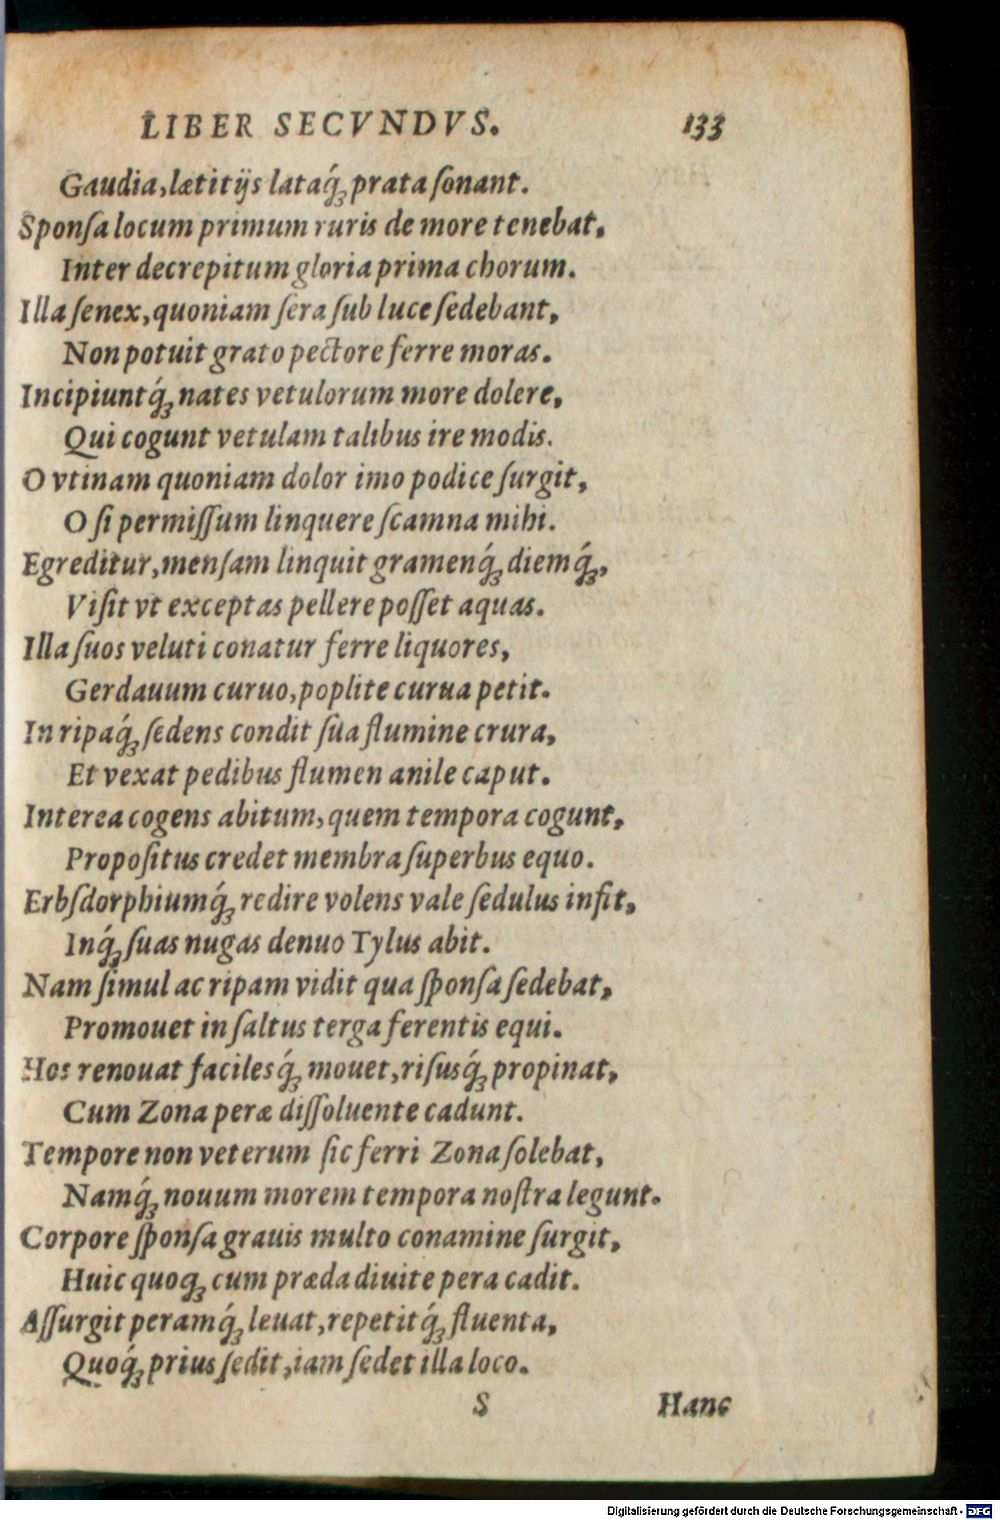 LIBER SECVNDVS. 133
Gaudia, lætitijs lataq́ꝫ prata ſonant.
Sponſa locum primum ruris de more tenebat,
Inter decrepitum gloria prima chorum.
Illa ſenex, quoniam ſera ſub luce ſedebant,
Non potuit grato pectore ferre moras.
Incipiuntq́ꝫ nates vetulorum more dolere,
Qui cogunt vetulam talibus ire modis.
O vtinam quoniam dolor imo podice ſurgit,
O ſi permiſſum linquere ſcamna mihi.
Egreditur, menſam linquit gramenq́ꝫ diemq́ꝫ,
Viſit vt exceptas pellere poſſet aquas.
Illa ſuos veluti conatur ferre liquores,
Gerdauum curuo, poplite curua petit.
In ripaq́ꝫ ſedens condit ſua flumine crura,
Et vexat pedibus flumen anile caput.
Interea cogens abitum, quem tempora cogunt,
Propoſitus credet membra ſuperbus equo.
Erbſdorphiumq́ꝫ redire volens vale ſedulus infit,
Inq́ꝫ ſuas nugas denuo Tylus abit.
Nam ſimul ac ripam vidit qua ſponſa ſedebat,
Promouet in ſaltus terga ferentis equi.
Hos renouat facilesq́ꝫ mouet, riſusq́ꝫ propinat,
Cum Zona peræ diſſoluente cadunt.
Tempore non veterum ſic ferri Zona ſolebat,
Namq́ꝫ nouum morem tempora noſtra legunt.
Corpore ſponſa grauis multo conamine ſurgit,
Huic quoqꝫ cum præda diuite pera cadit.
Aſſurgit peramq́ꝫ leuat, repetitq́ꝫ fluenta,
Quoq́ꝫ prius ſedit, iam ſedet illa loco.
S Hanc
Digitalisierung gefördert durch die Deutsche Forschungsgemeinschaft - DFG